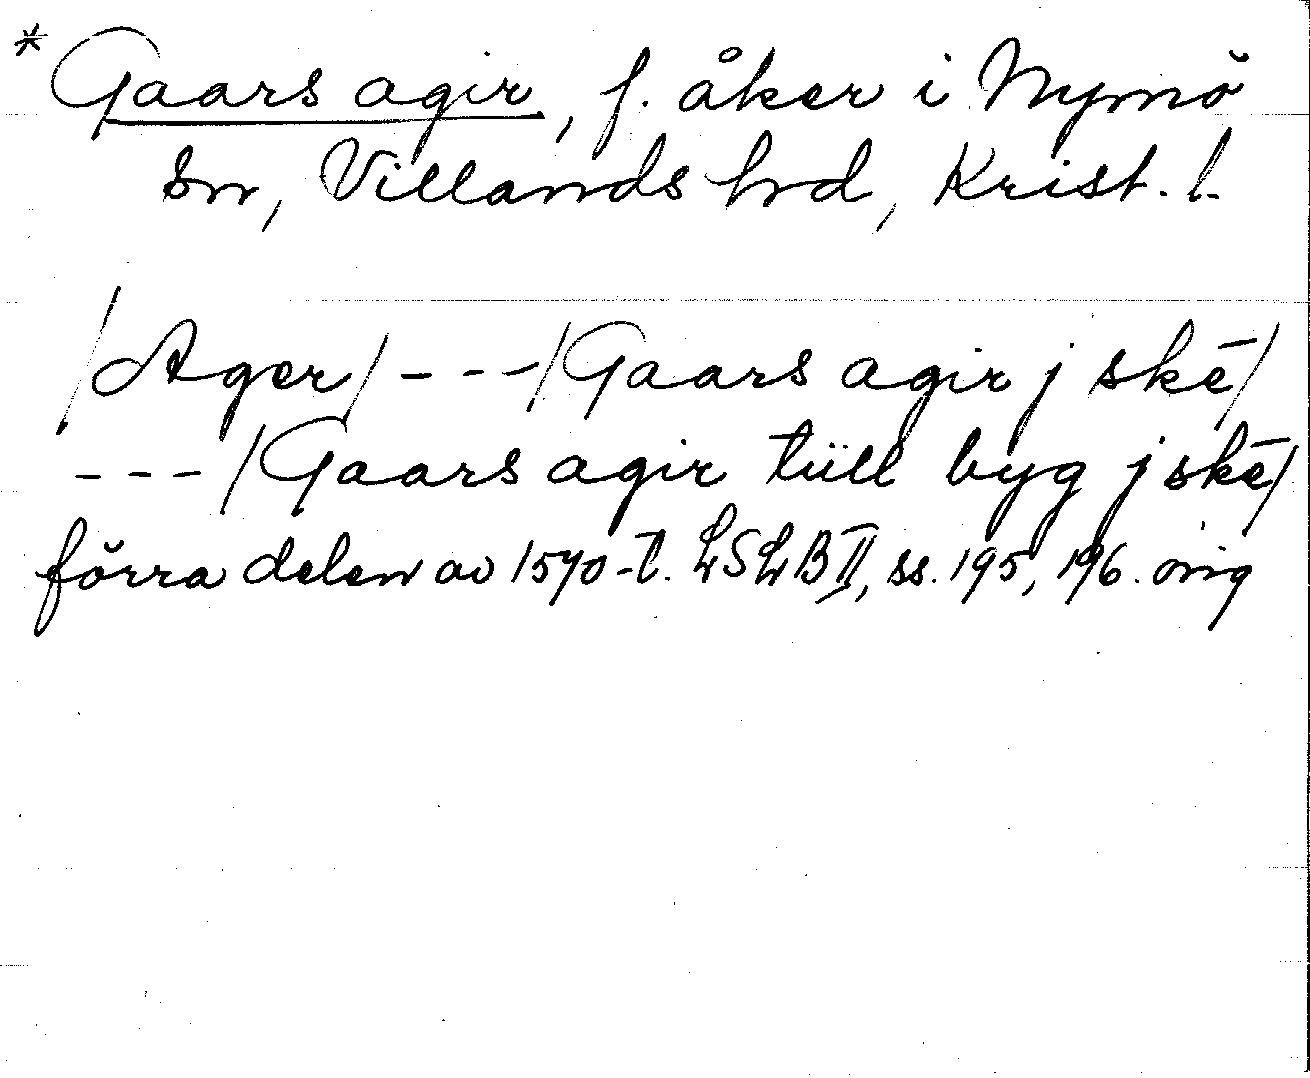 * Gaars agir, f. åker i Nymö
sn, Villands hd, Krist. l.
/Ager/ - - - /Gaars agir j skē/
- - - /Gaars agir tüll byg j skē/
förra delen av 1570-t. LSLB II, ss. 195, 196. orig